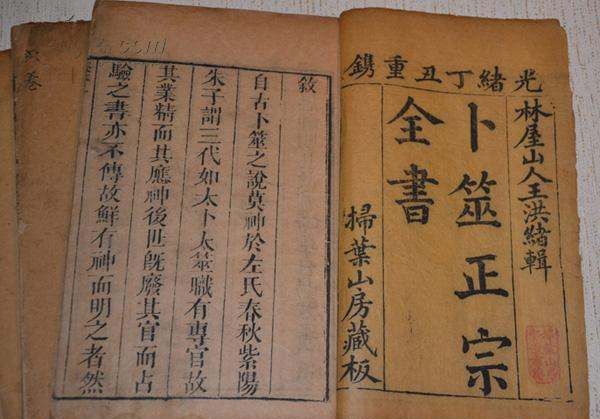 光緒丁丑重鐫
林屋山人王洪緒輯
卜筮正宗
全書
掃葉山房藏板
敘
自古卜筮之說莫神於左氏春秋紫陽
朱子謂三代如太卜太筮職有專官故
其業精而其應神後世旣廢其官而占
驗之書亦不傳故鮮有神而明之者然
卷